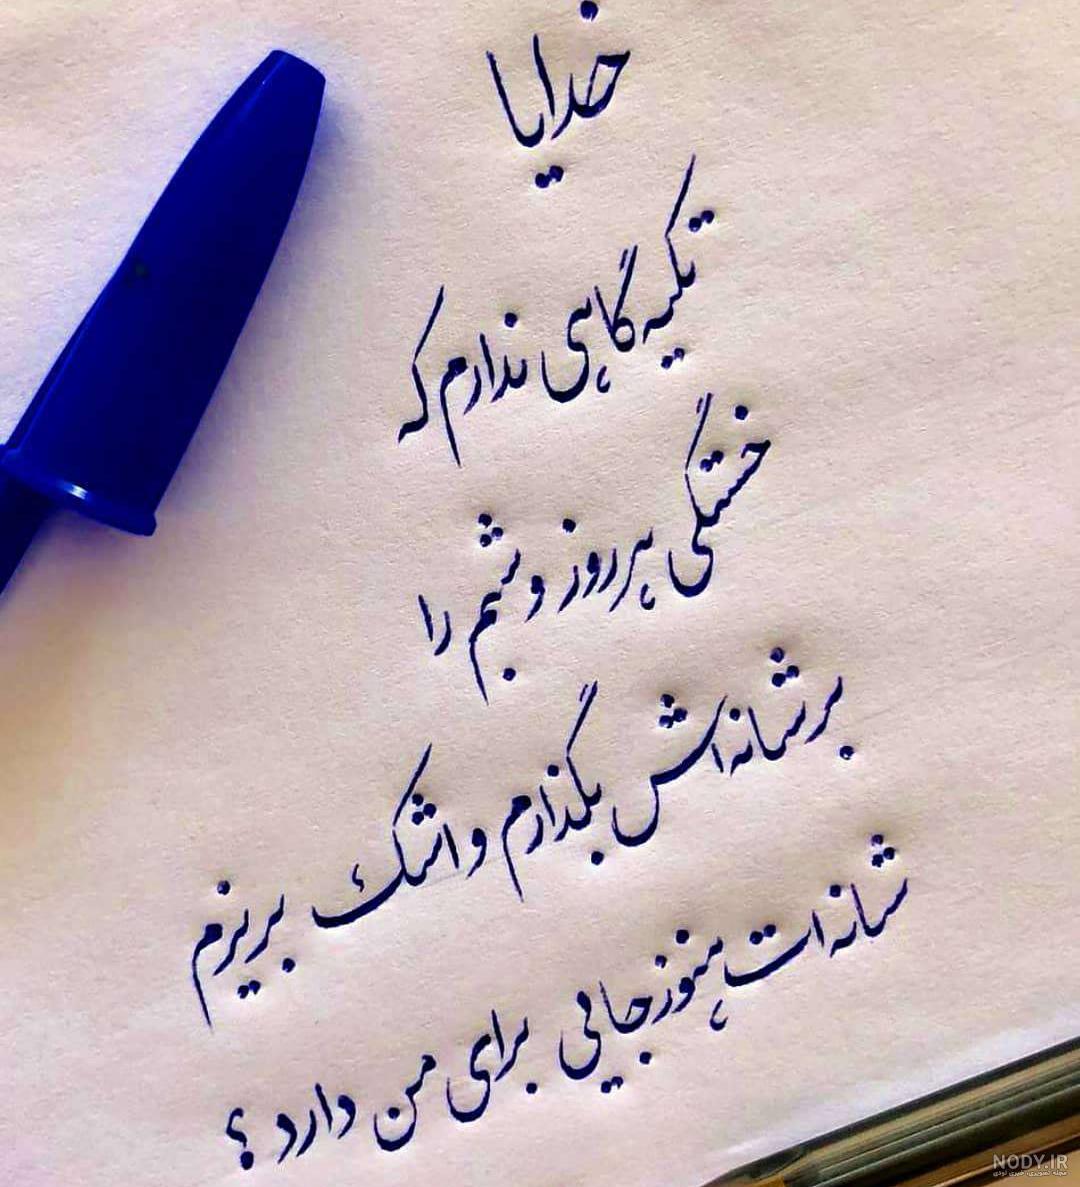 خدایا
تکیه گاهی ندارم که
خستگی هر روز و شبم را
بر شانه اش بگذارم و اشک بریزم
شانه ات هنوز جایی برای من دارد ؟
NODY.IR
مجله تصویری، خبری نودی